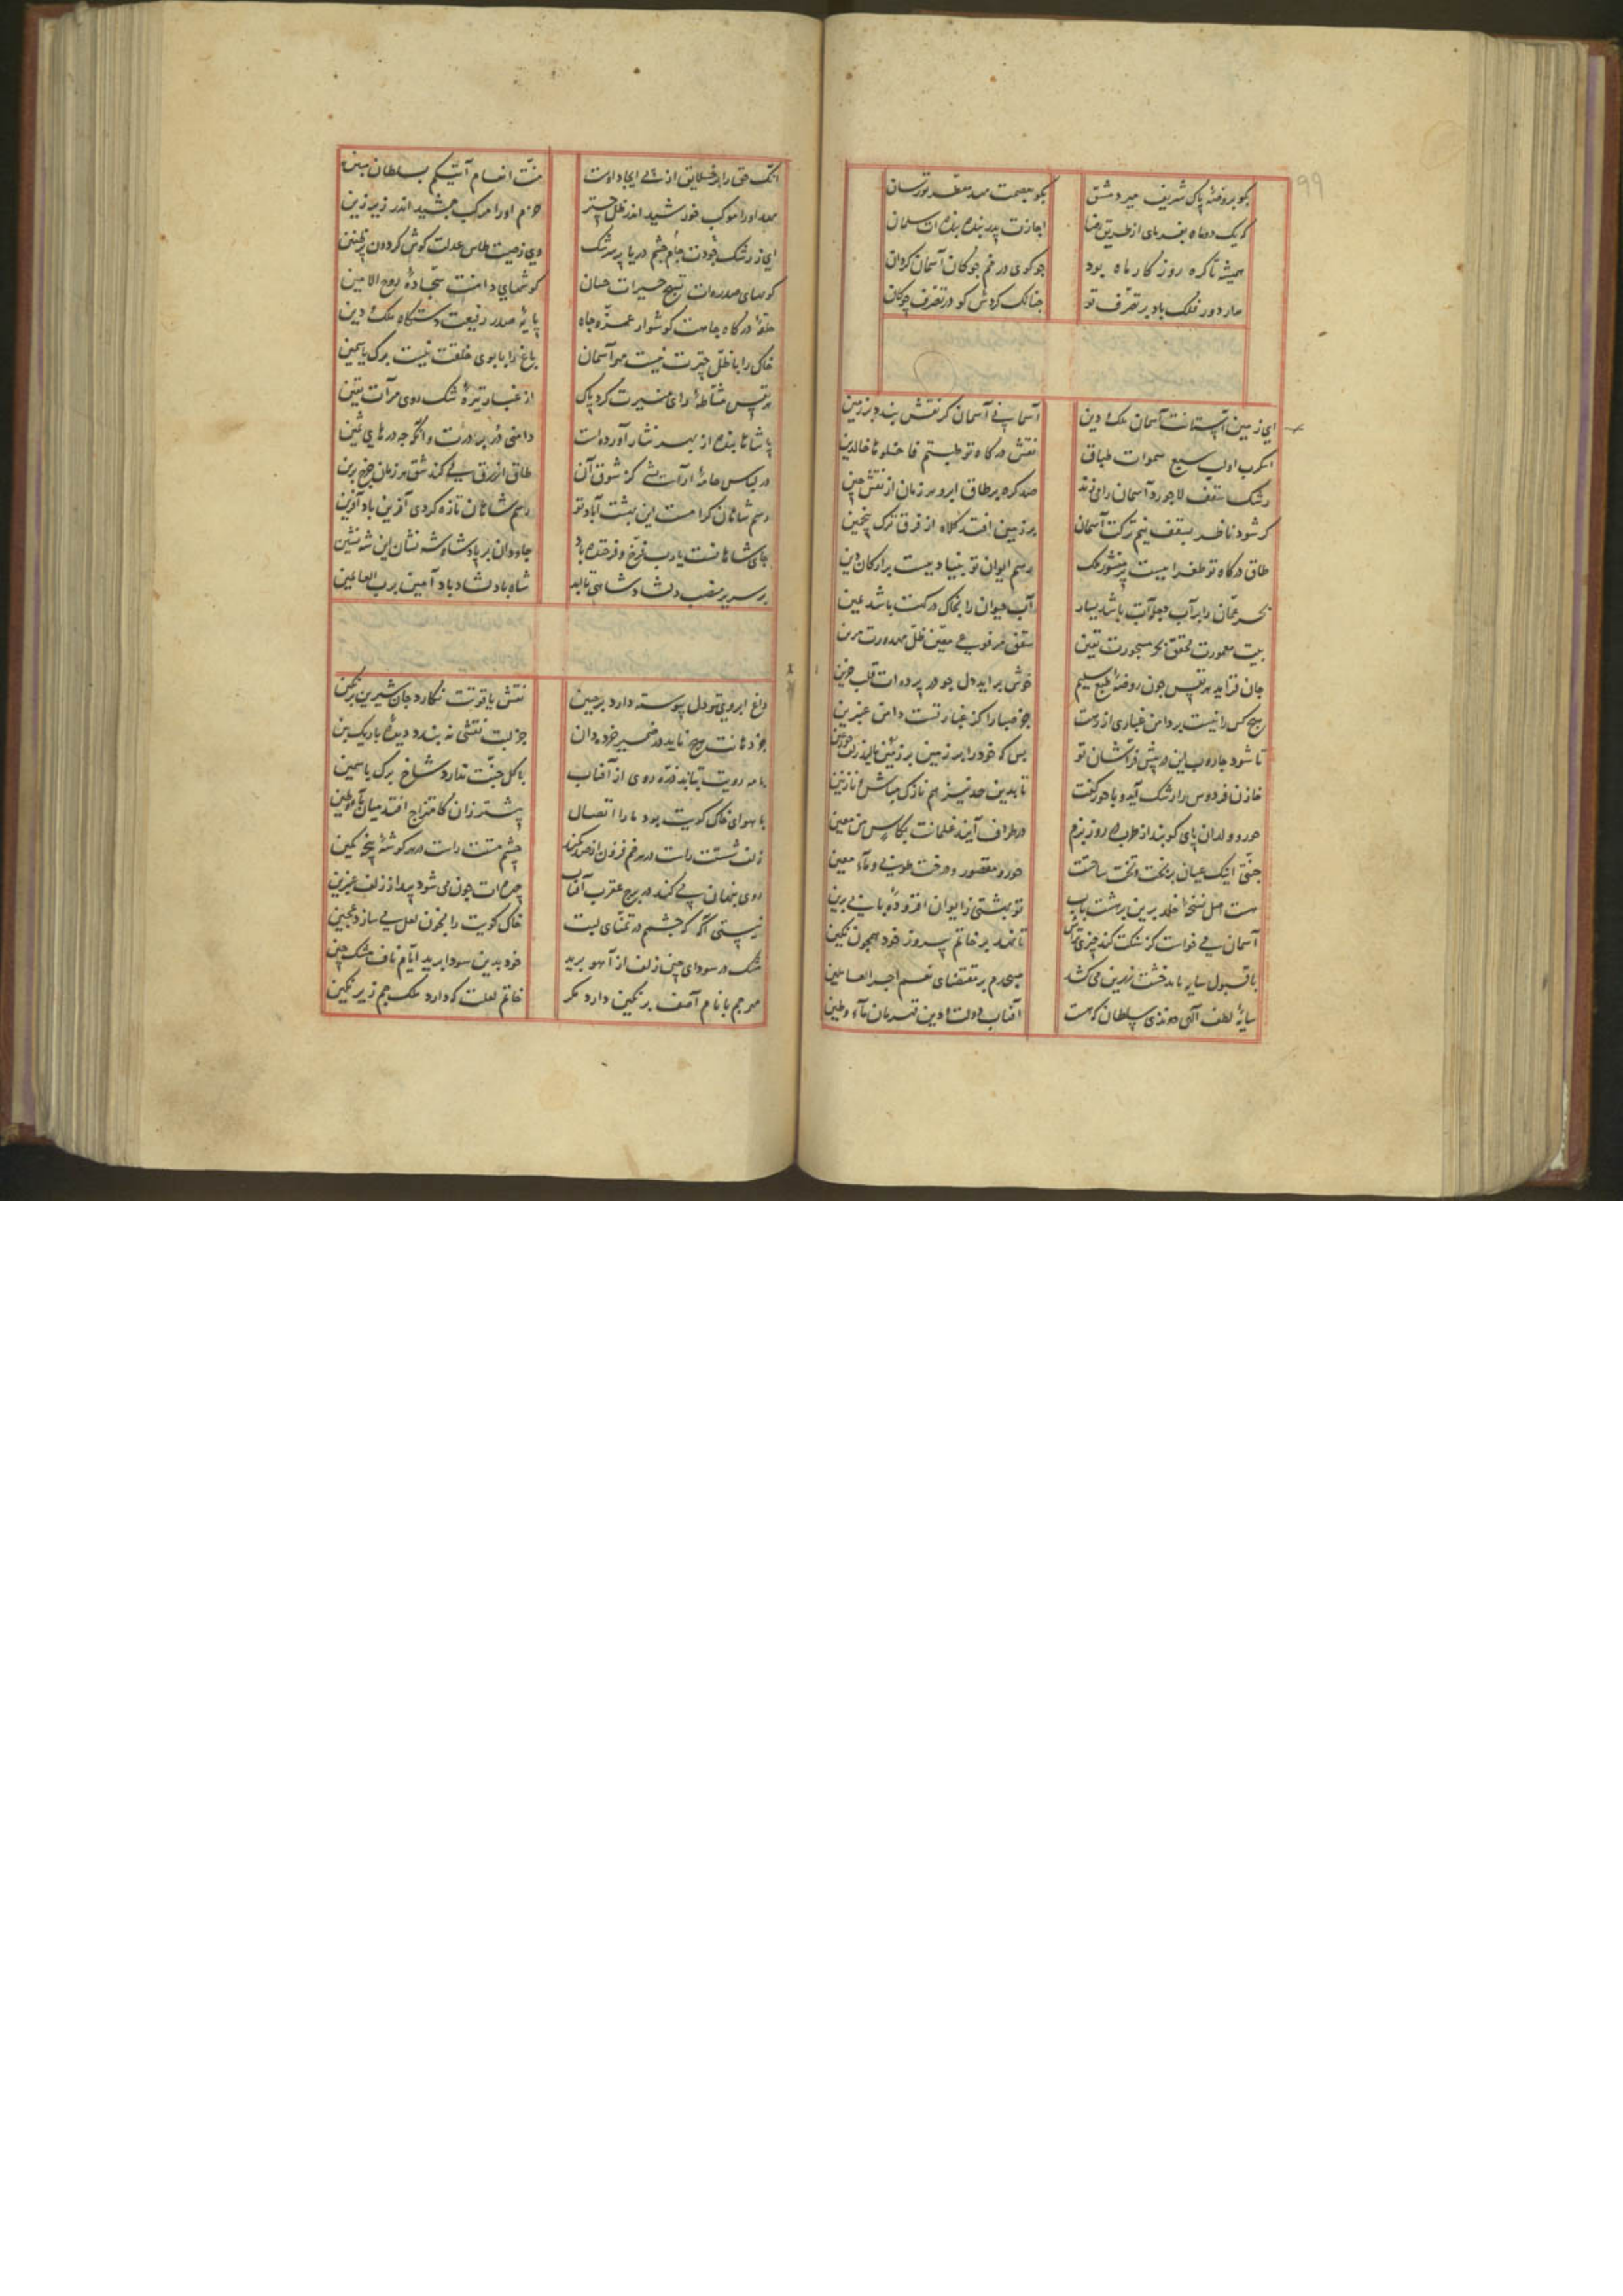 99
بگو بروضهٔ پاک شریف میر دمشق
بگو بعصمت مهد معطر تورسان
که یک دوماه بفرمای از طریق رضا
اجازت پدر بنده بنده ات سلمان
همیشه تا کره روز کار ماه بود
جو کوی در خم جوکان آسمان کردان
مدار دور فلک باد بر تصرف تو
جنانک کردش کو در تصرف چوکان
ای زمین آستانت آسمان ملک و دین
آسمانی آسمان کر نقش بندد بر زمین
نقش درکاه تو طبتم فادخلوها خالدین
رشک سقف لاجورد آسمان را می‌زند
صد کره بر طاق ابرو هر زمان از نقش چین
کر شود ناظر بسقف نیم ترکت آسمان
بر زمین افتد کلاه از فرق ترک پنجمین
طاق درکاه تو طغراییست بر منشور ملک
رسم ایوان تو بنیادیست بر ارکان دین
بحر عمان را بر آب
آب حیوان را بخاک درکت باشد یمین
بیت معمورت محقق بحر مسجورت یقین
سقف مرفوع
جان فزاید هر نفس چون روضهٔ طبع سلیم
خوش براید دل جو در پرده ات قلب حزین
هیچ کس را نیست بر دامن غباری از درت
جز صبا را کز غبار تست دامن عنبرین
تا شود جاروب این در پیش فراشان تو
بس که خود را بر زمین مالید زلف حور عین
خازن فردوس را رشک آید و با حور کفت
تا بدین حد نیز هم نازک مباش ای نازنین
حور و ولدان پای کوبند از طرب روز بزم
در طراف آیند غلمانت بکاس من معین
جنتی اینک عیان بر بخت و تخت ساخت
حور و مقصور و درخت طوبی و ماء معین
هست اصل نسخهٔ خلد برین بر هشت باب
تو بهشتی زایوان افزودهٔ بابی برین
آسمان می‌خواست کز
تا نهد بر خاتم پیروزه خود همجون نکین
با قبول سایه باید خشت زرین می کشد
صبحدم بر مقتضای نعم اجر العاملین
سایهٔ لطف الهی دوندی سلطان که هست
آفتاب دولت و دین قهرمان ماء و طین
آنک حق را بر خلایق از پی ایجاد اوست
منت انعام آتیکم بسلطان مبین
مهد او را موکب خورشید اندر ظل چتر
حزم او را مرکب جمشید اندر زیر زین
ای ز رشک جودت جام چشم دریا پر سرشک
وی ز صیت طاس عدلت کوش کردون پر طنین
کویهای صدره ات تسبیح خیرات حسان
کوشهای دامنت سجادهٔ روح الامین
حلقهٔ درکاه جاهت کوشوار عز و جاه
پایهٔ صدر رفیعت دستکاه ملک و دین
خاک را با ظل چترت نیست هوای آسمان
باغ را با بوی خلقت نیست برک یاسمین
هر نفس مشاطهٔ رای منیرت کرد پاک
از غبار تیرهٔ شک روی مرآت یقین
پادشاها بنده از بهر نثار آورده است
دامنی در بر درت وانکه جه درهای ثمین
در لباس جامهٔ
طاق ازرق می کند شق هر زمان چرخ برین
رسم شاهان کرامست این بهشت آباد تو
رسم شاهان تازه کردی آفرین باد آفرین
جای شاهانست یا رب فرخ و فرخنده باد
جاودان بر پادشاه و شه نشان این شه نشین
بر سریر منصب دلشاد شاهی تا ابد
شاه بادلشاد باد آمین برب العالمین
داغ ابروی تو دل پیوسته دارد بر جبین
نقش یاقوتت نکارد جان شیرین بر نکین
جز دهانت هیچ ناید در ضمیر خرده دان
جز لبت نقشی نه بندد دیدهٔ باریک بین
با مه رویت نتابد ذره روی از آفتاب
با کل جنت ندارد شاخ برک یاسمین
با هوای خاک کویت بود ما را اتصال
پیشتر زان کامتزاج افتد میان ماء و طین
زلف شستت راست در هر خم فزون از صد کمند
چشم مستت راست در هر کوشهٔ پنجه کمین
روی پنهان می کند در برج عقرب آفتاب
چهره ات چون می شود پیدا ز زلف عنبرین
نیستی آکه که چشمم در تمنای لبت
خاک کویت را بخون لعل می سازد عجین
مشک در سودای چین زلفت از آهو برید
خود بدین سودا برید ایام ناف مشک چین
مهر جم با نام آصف بر نکین دارد مکر
خاتم لعلت که دارد ملک جم زیر نکین